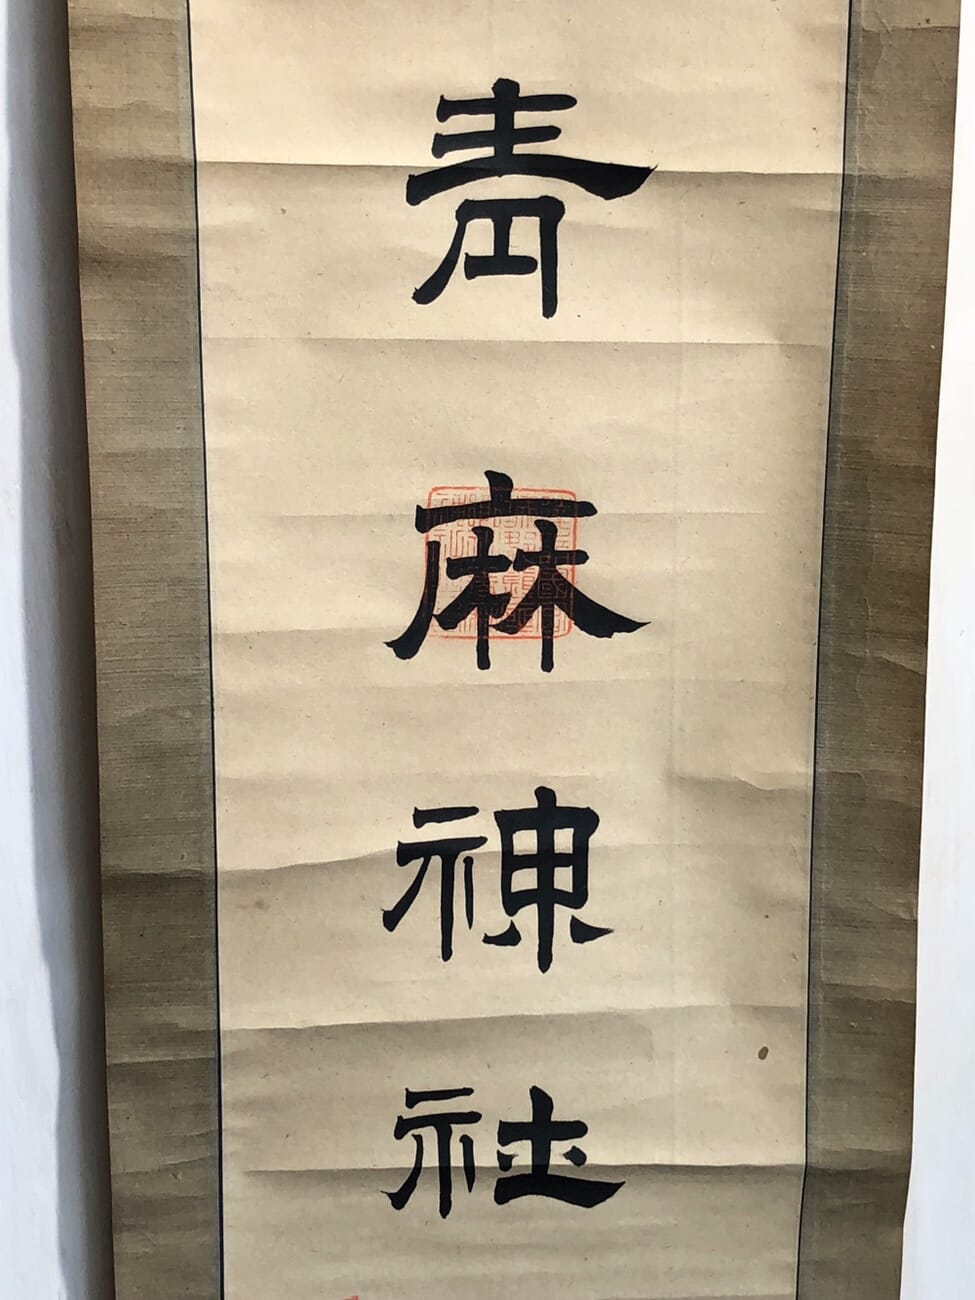 青麻神社